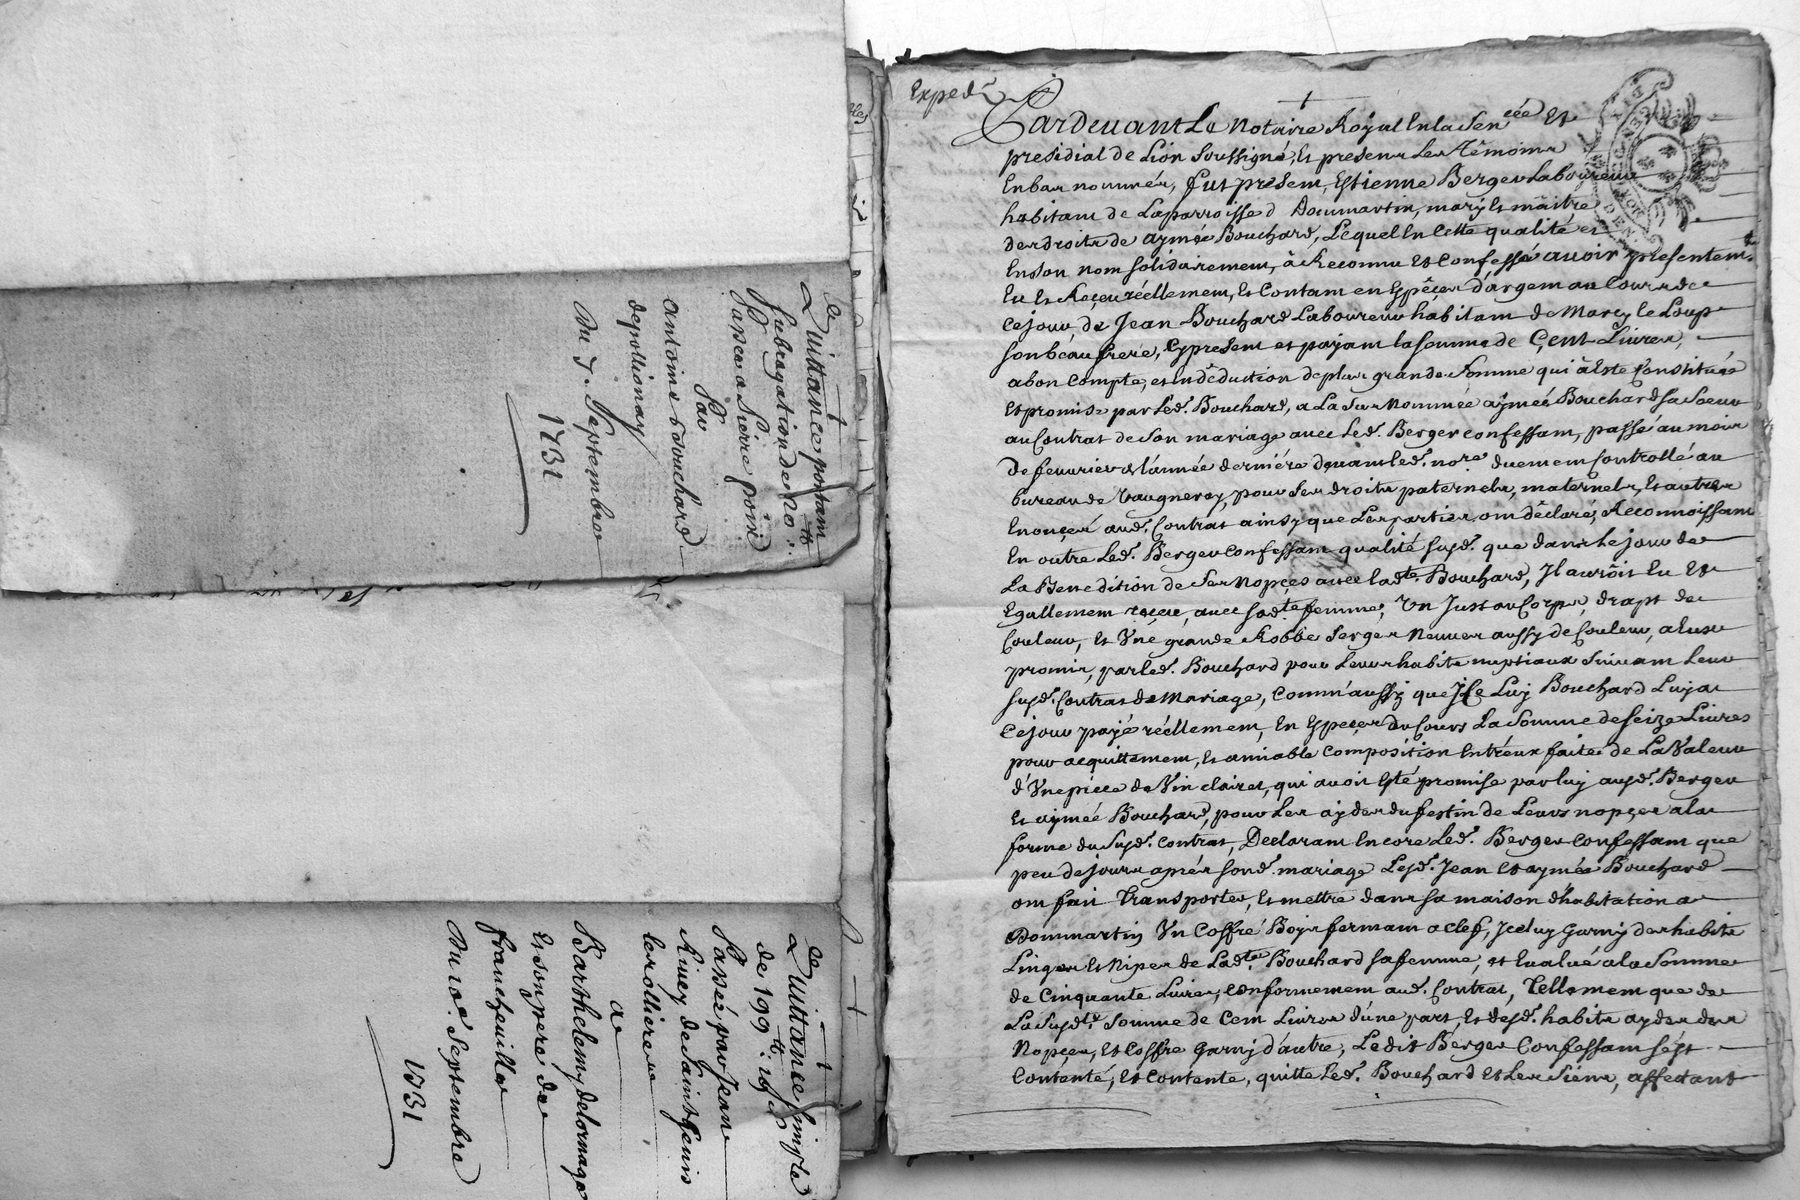 ce
Quittance portant
subrogation de 170 ℔
passée a Pierre poirié
Par
antoine Bouchard
depollionay
Du 7. Septembre
1731
ce
Quittance simple
de 199 ℔: 10 s
Passée par Jeane
Rivey de Saint Genis
lerollieres
a
Barthelemy delornage
Et son pere de
francheville
Du 10e. Septembre
1731
Exped.
Pardevant Le Notaire Royal En la Sen.cée Et
presidial de Lion Soussigné, Et presens Les Témoins
En bas nommés, fut present, Estienne Berger Laboureur
habitant de La parroisse d Doumartin, mary Et maitre
des droits de aymée Bouchard, Lequel En Cette qualité et
En son nom solidairement, à Reconnu Et Confessé avoir presentemt.
Eu Et Reçeu réellement, Et Contant en Espéçes d'argent au Cours de
Ce jour de Jean Bouchard Laboureur habitant de Marcy le Loup
son béau frere, Cy present et payant la somme de Çent Livres,
a bon Compte, et in déduction de plus grande Somme qui à Esté Constituée
Et promise par Led. Bouchard, a La Sus Nommée aymée Bouchard sa Soeur
au Contrat de Son mariage avec Led. Berger confessant, passé au mois
de fevrier de l'année derniére devant led. no.re duement Controllé au
bureau de Vaugneray, pour Ses droits paternels, maternels, Et autres
Enonçés aud. Contrat ainsy que Les parties ont déclaré, Reconnoissant
En outre Led. Berger confessant qualité susd. que dans le jour de
La Benediction de Ses Nopçes avec lad.te Bouchard, Il auroit Eu Et
Egallement reçeu, avec sad.te femme, Un Just au Corps, drapt de
Couleur, Et Une grande Robbe Serges Neuves aussy de Couleur, a Eux
promis, par led. Bouchard pour Leurs habits nuptiaux Suivant Leur
susd. Contrat de Mariage, Comm'aussy que Ice Luy Bouchard Luy a
Ce jour payé réellement, En Espeçes du Cours La Somme de seize Livres
pour acquittement, Et amiable Composition Entr'eux faite de La Valeur
d'Une piéce de Vin clairet, qui avoit Esté promise par luy ausd. Berger
Et aymée Bouchard, pour Les ayder du festin de Leurs nopçes a la
forme du Susd. Contrat, Declarant Encore Led. Berger Confessant que
peu de jours après sond. mariage Lesd. Jean Et aymée Bouchard
ont fait Transporter, Et mettre dans sa maison d'habitation a
Dommartin Un Coffre Bois fermant a clef, Iceluy Garny des habits
Linges Et Nipes de Lad.te Bouchard sa femme, Et Evalué a la Somme
de Cinquante Livres, Conformement aud. Contrat, Tellement que de
La Susd.te Somme de Cent Livres d'une part, Et desd. habits ayder des
Nopçes, Et Coffre garny d'autre, Ledit Berger Confessant s'est
Contenté, Et Contente, quitte Led. Bouchard Et Les Siens, affectant